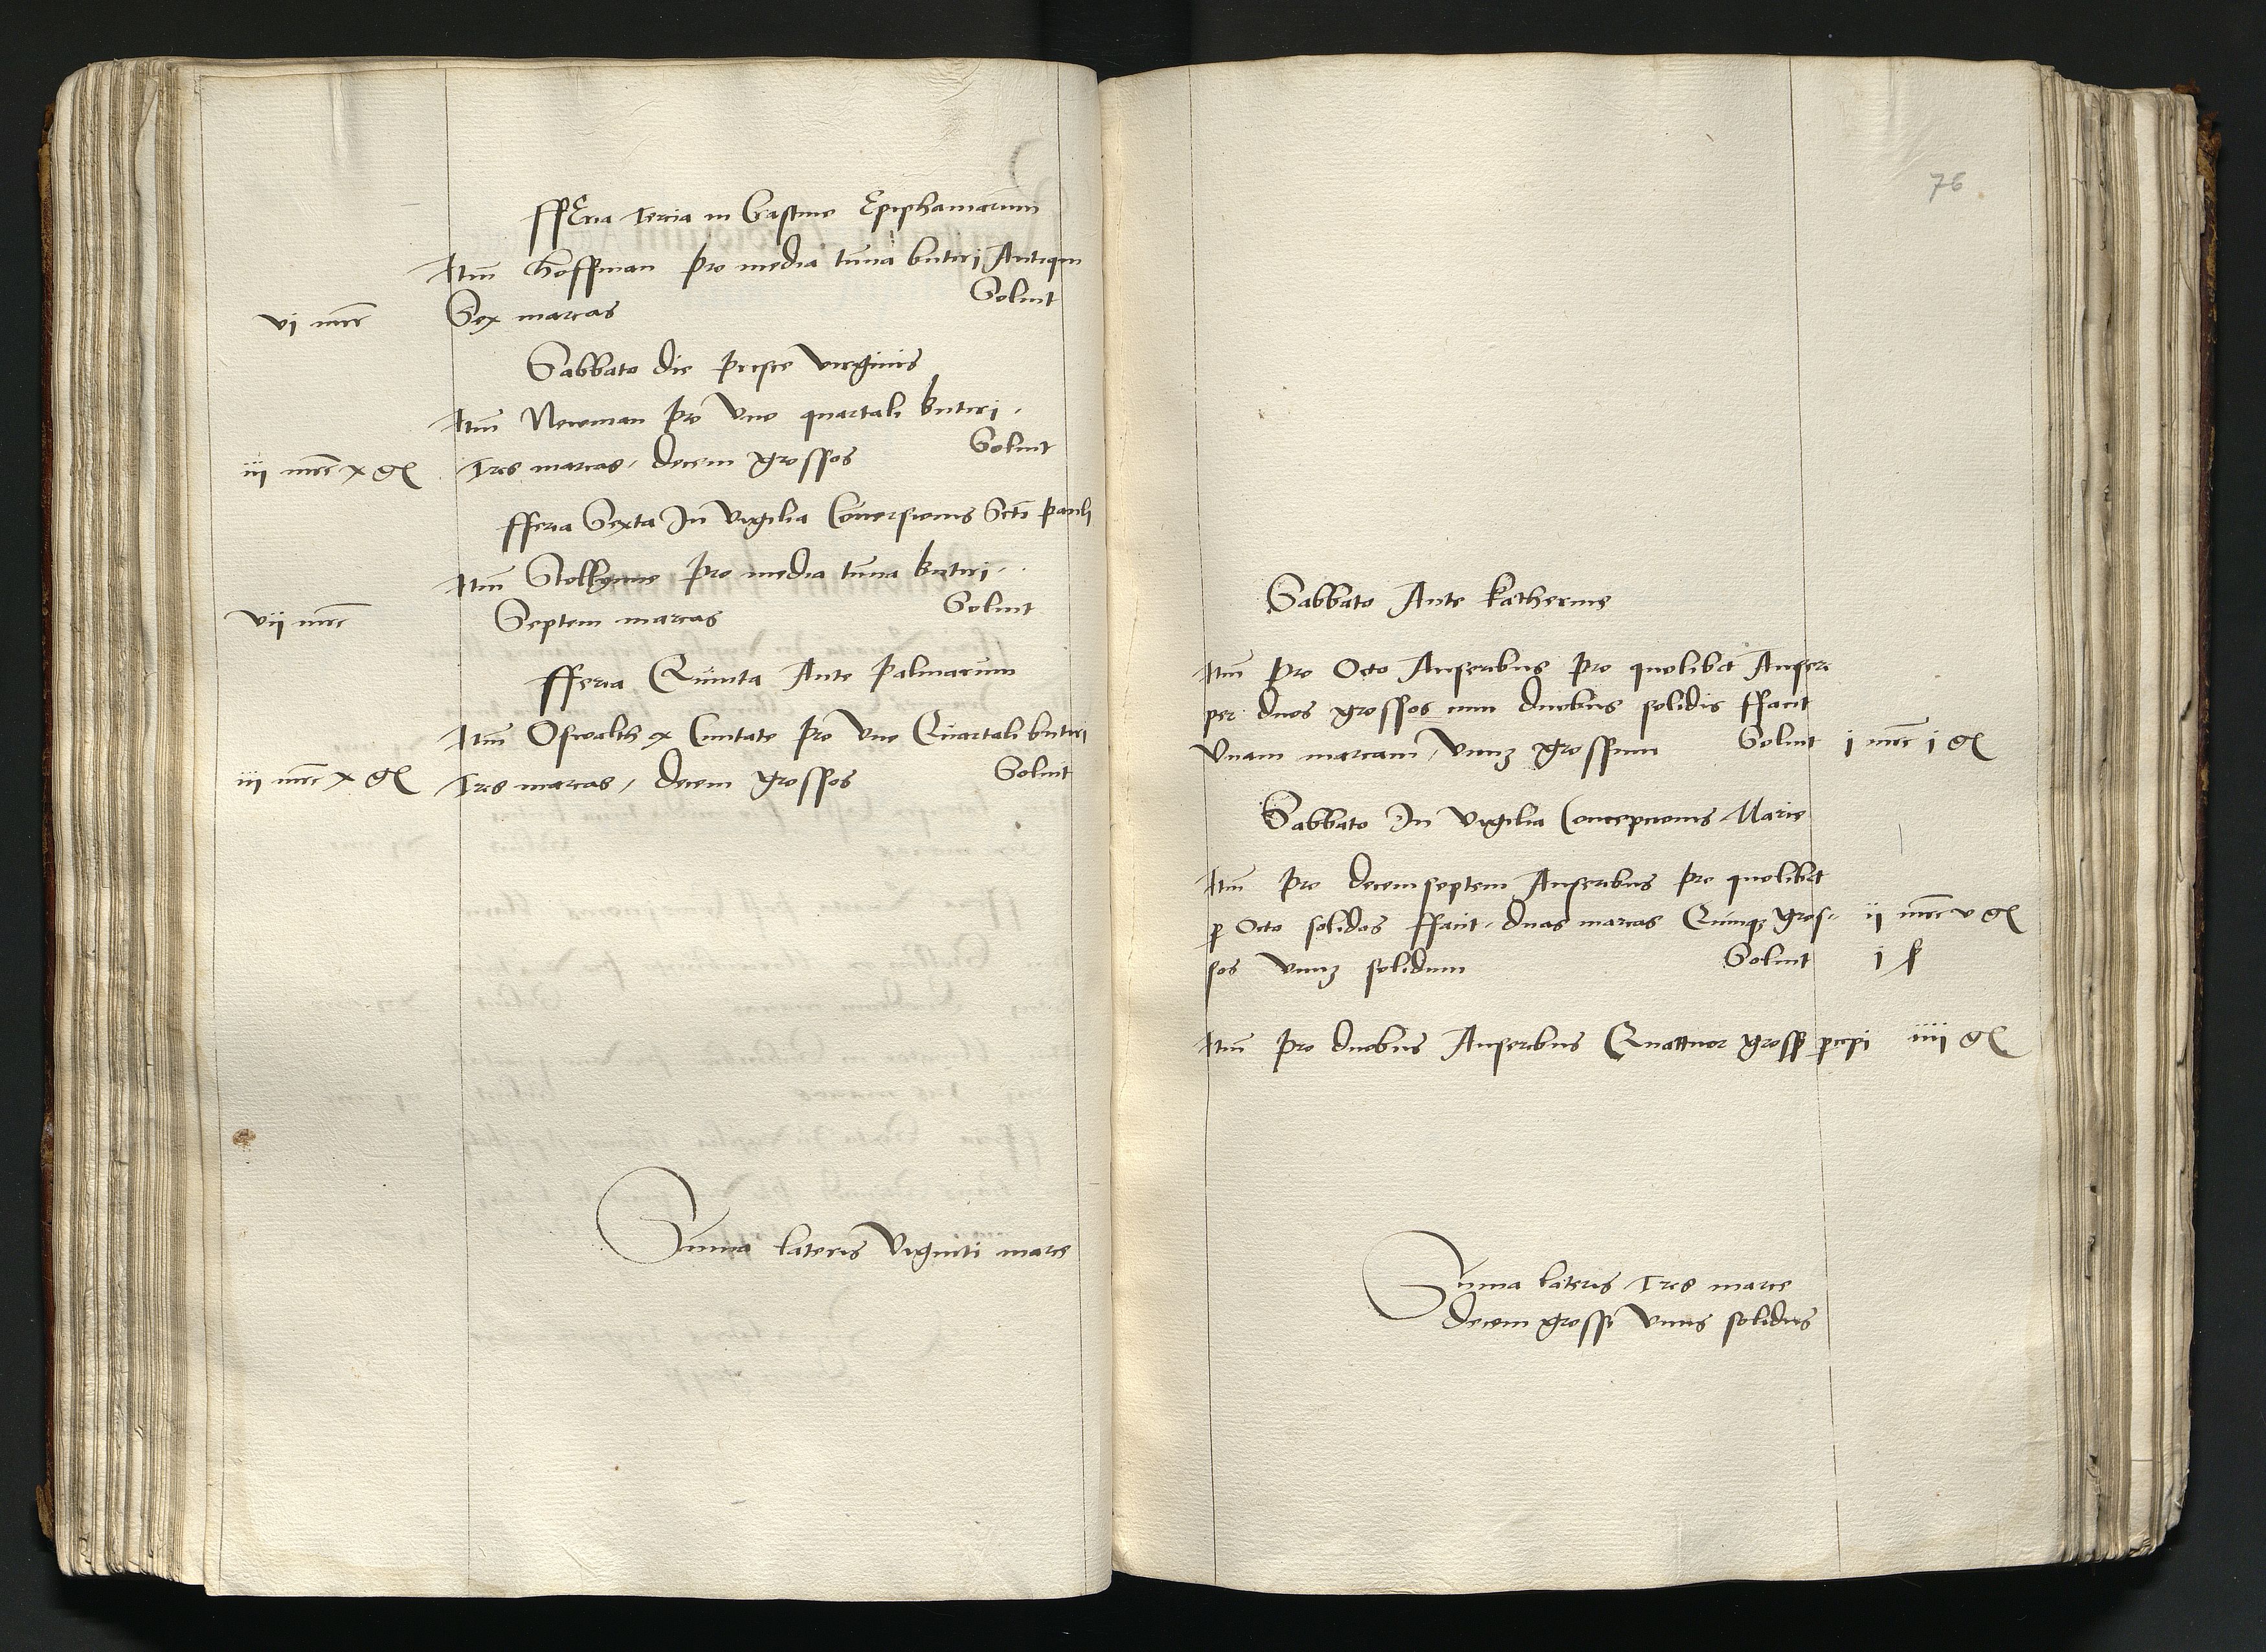 fferia tercia in Crastino Epiphaniarum
Itm̄ Hoffman pro media tun̄a butiri Antiqui
Soluit
vi mrc̄ Sex marcas
Sabbato die Prisce virginis
Itm̄ Newman pro Vno quartali butiri.
Soluit
iij mrc̄ x gſ Tres marcas, decem grossos
fferia Sexta In Vigilia Cōuersionis Sctī Pauli
Itm̄ pro media tun̄a butiri.
Soluit
vij mrc̄ Septem marcas
fferia Quinta Ante Palmarum
Itm̄ Oswalth ex Ciuitate pro Vno Quartali butiri
iij mrc̄ x gſ Tres marcas, decem grossos Soluit
Sum̄a lateris Viginti marce
76
Sabbato Ante Katherine
Itm̄ pro Octo Anseribus pro quolibet Ansere
per duos grossos cum duobus solidis ffacit
Vnam marcam, Vnuʒ grossum Soluit j mrc̄ j gſ
Sabbato In Vigilia Concepcionis Marie
Itm̄ pro decemseptem Anseribus pro quolibet
ꝑ Octo solidos ffacit. duas marcas Quinqʒ gros= ij mrc̄ v gſ
sos Vnuʒ solidum Soluit j ß
Itm̄ pro duobus Anseribus Quattuor gross ꝑcepi iiij gſ
Sum̄a lateris Tres marce
decem grossi Vnus solidus